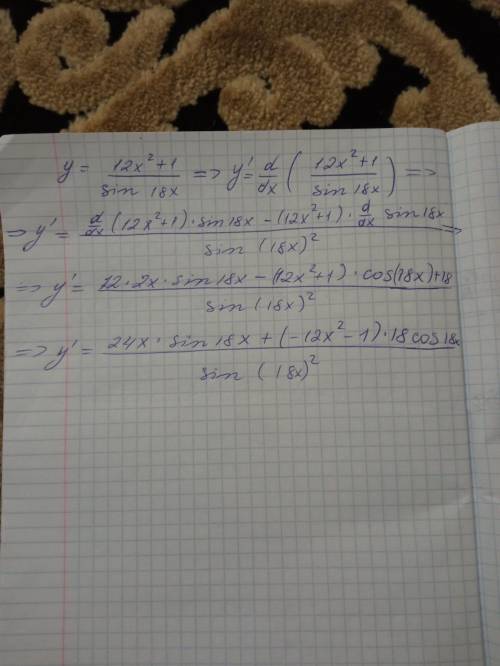 y = (12x²+1)/(sin 18x) => y' = d/dx ((12x²+1)/(sin 18x)) =>
=> y' = (d/dx (12x²+1) · sin 18x − (12x²+1) · d/dx sin 18x)/(sin (18x)²) =>
=> y' = (12 · 2x · sin 18x − (12x²+1) · cos(18x)+18)/(sin (18x)²)
=> y' = (24x · sin 18x + (−12x²−1) · 18 cos 18x)/(sin (18x)²)